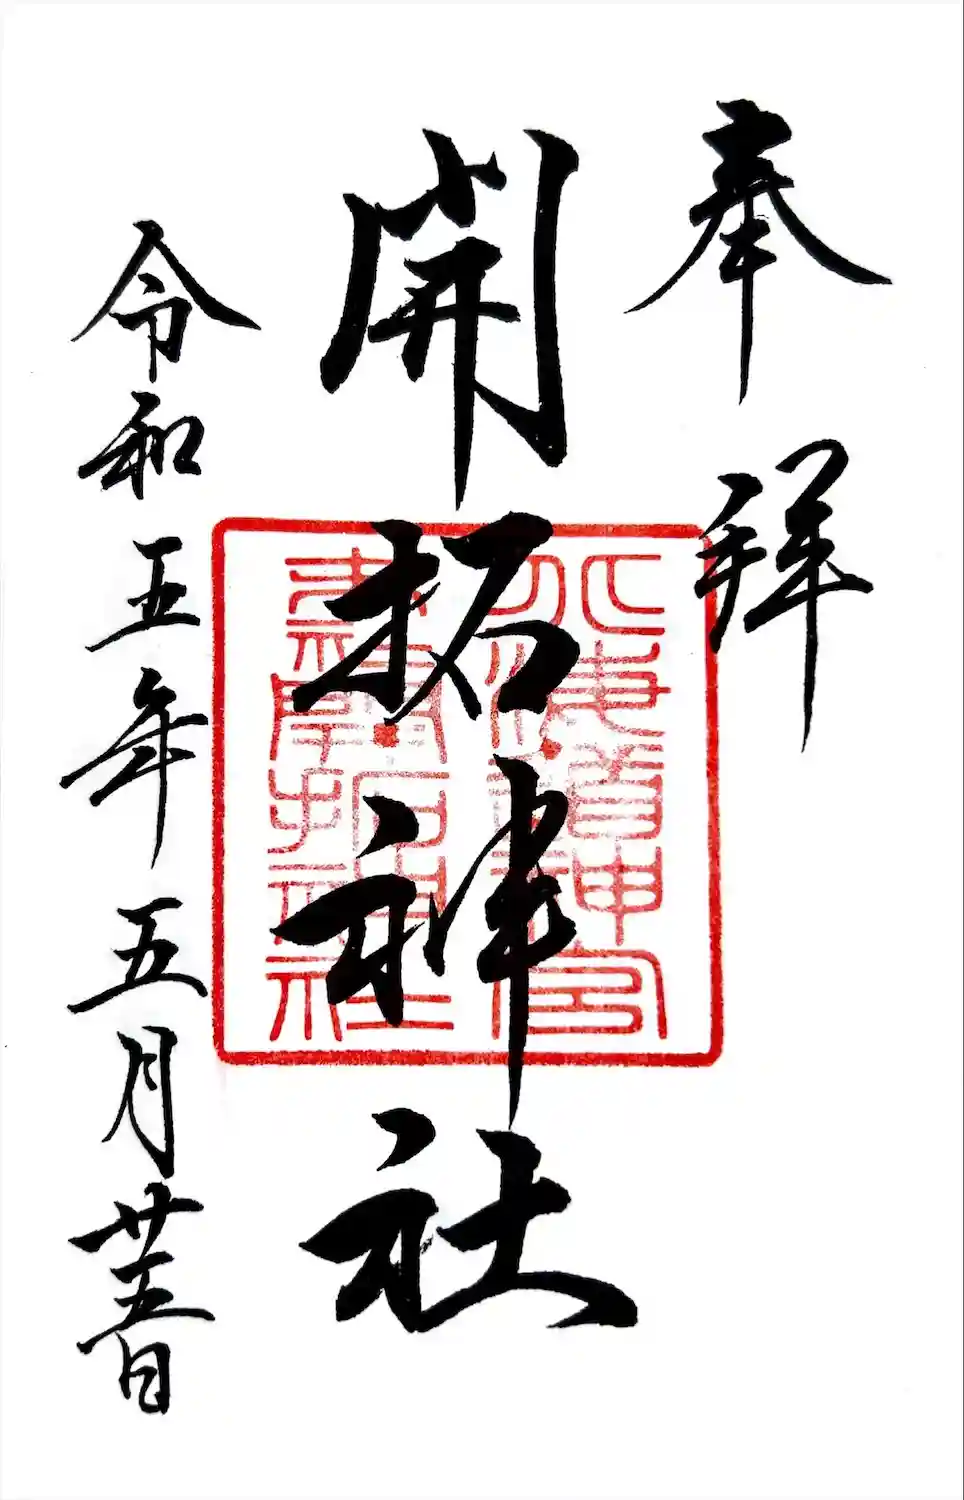 奉拜
開拓神社
令和五年五月廿五日
北海道神宮
末社開拓神社